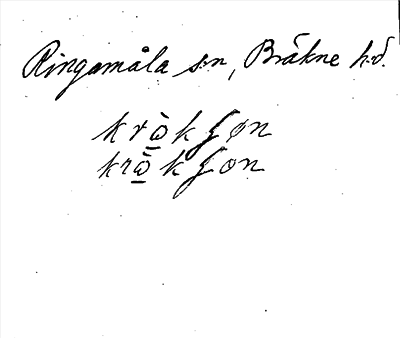 Ringamåla sn, Bräkne hd.
krὼ̲kʃøn
krὼ̲kʃon